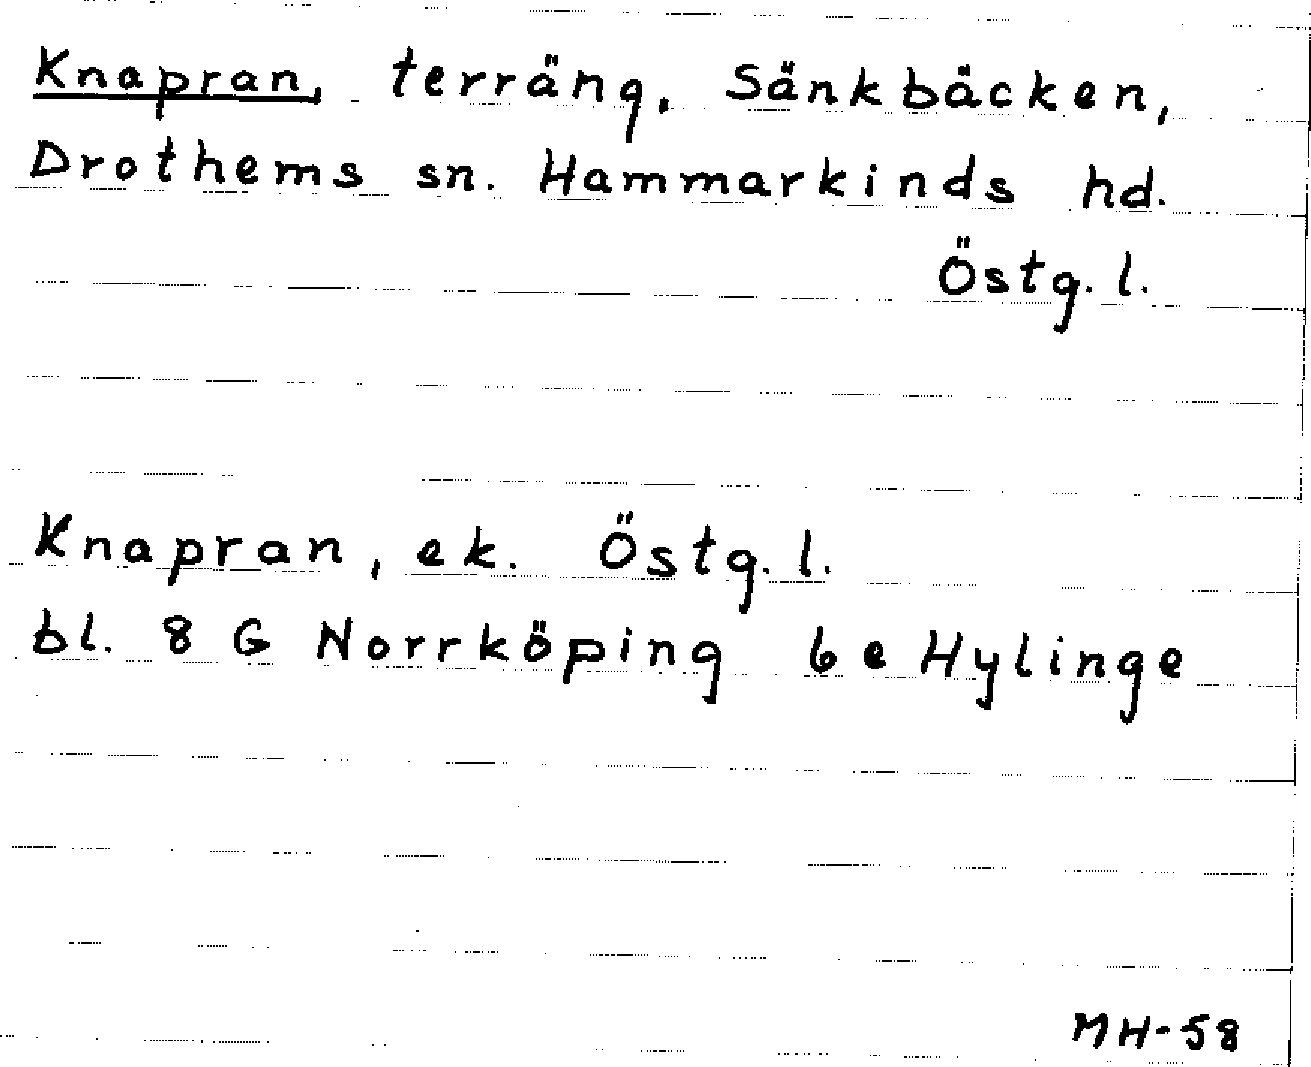 Knapran, terräng, Sänkbäcken,
Drothems sn. Hammarkinds hd.
Östg. l.
Knapran, ek. Östg. l.
bl. 8 G Norrköping 6e Hylinge
MH-58